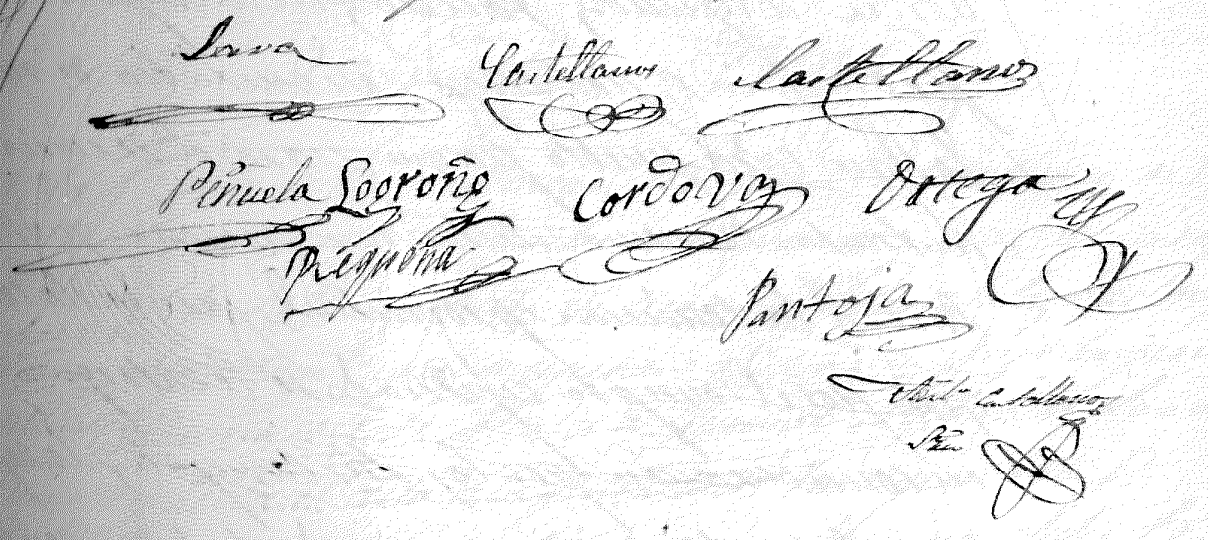 Lara Castellanos Castellanos
Piñuela Logroño Cordova Ortega
Requena
Pantoja
Castellanos
Srio